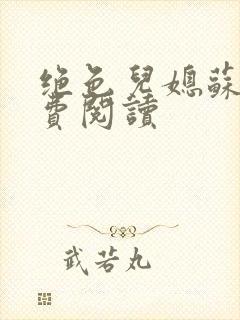 绝色兒媳蘇
費閱讀
武若丸